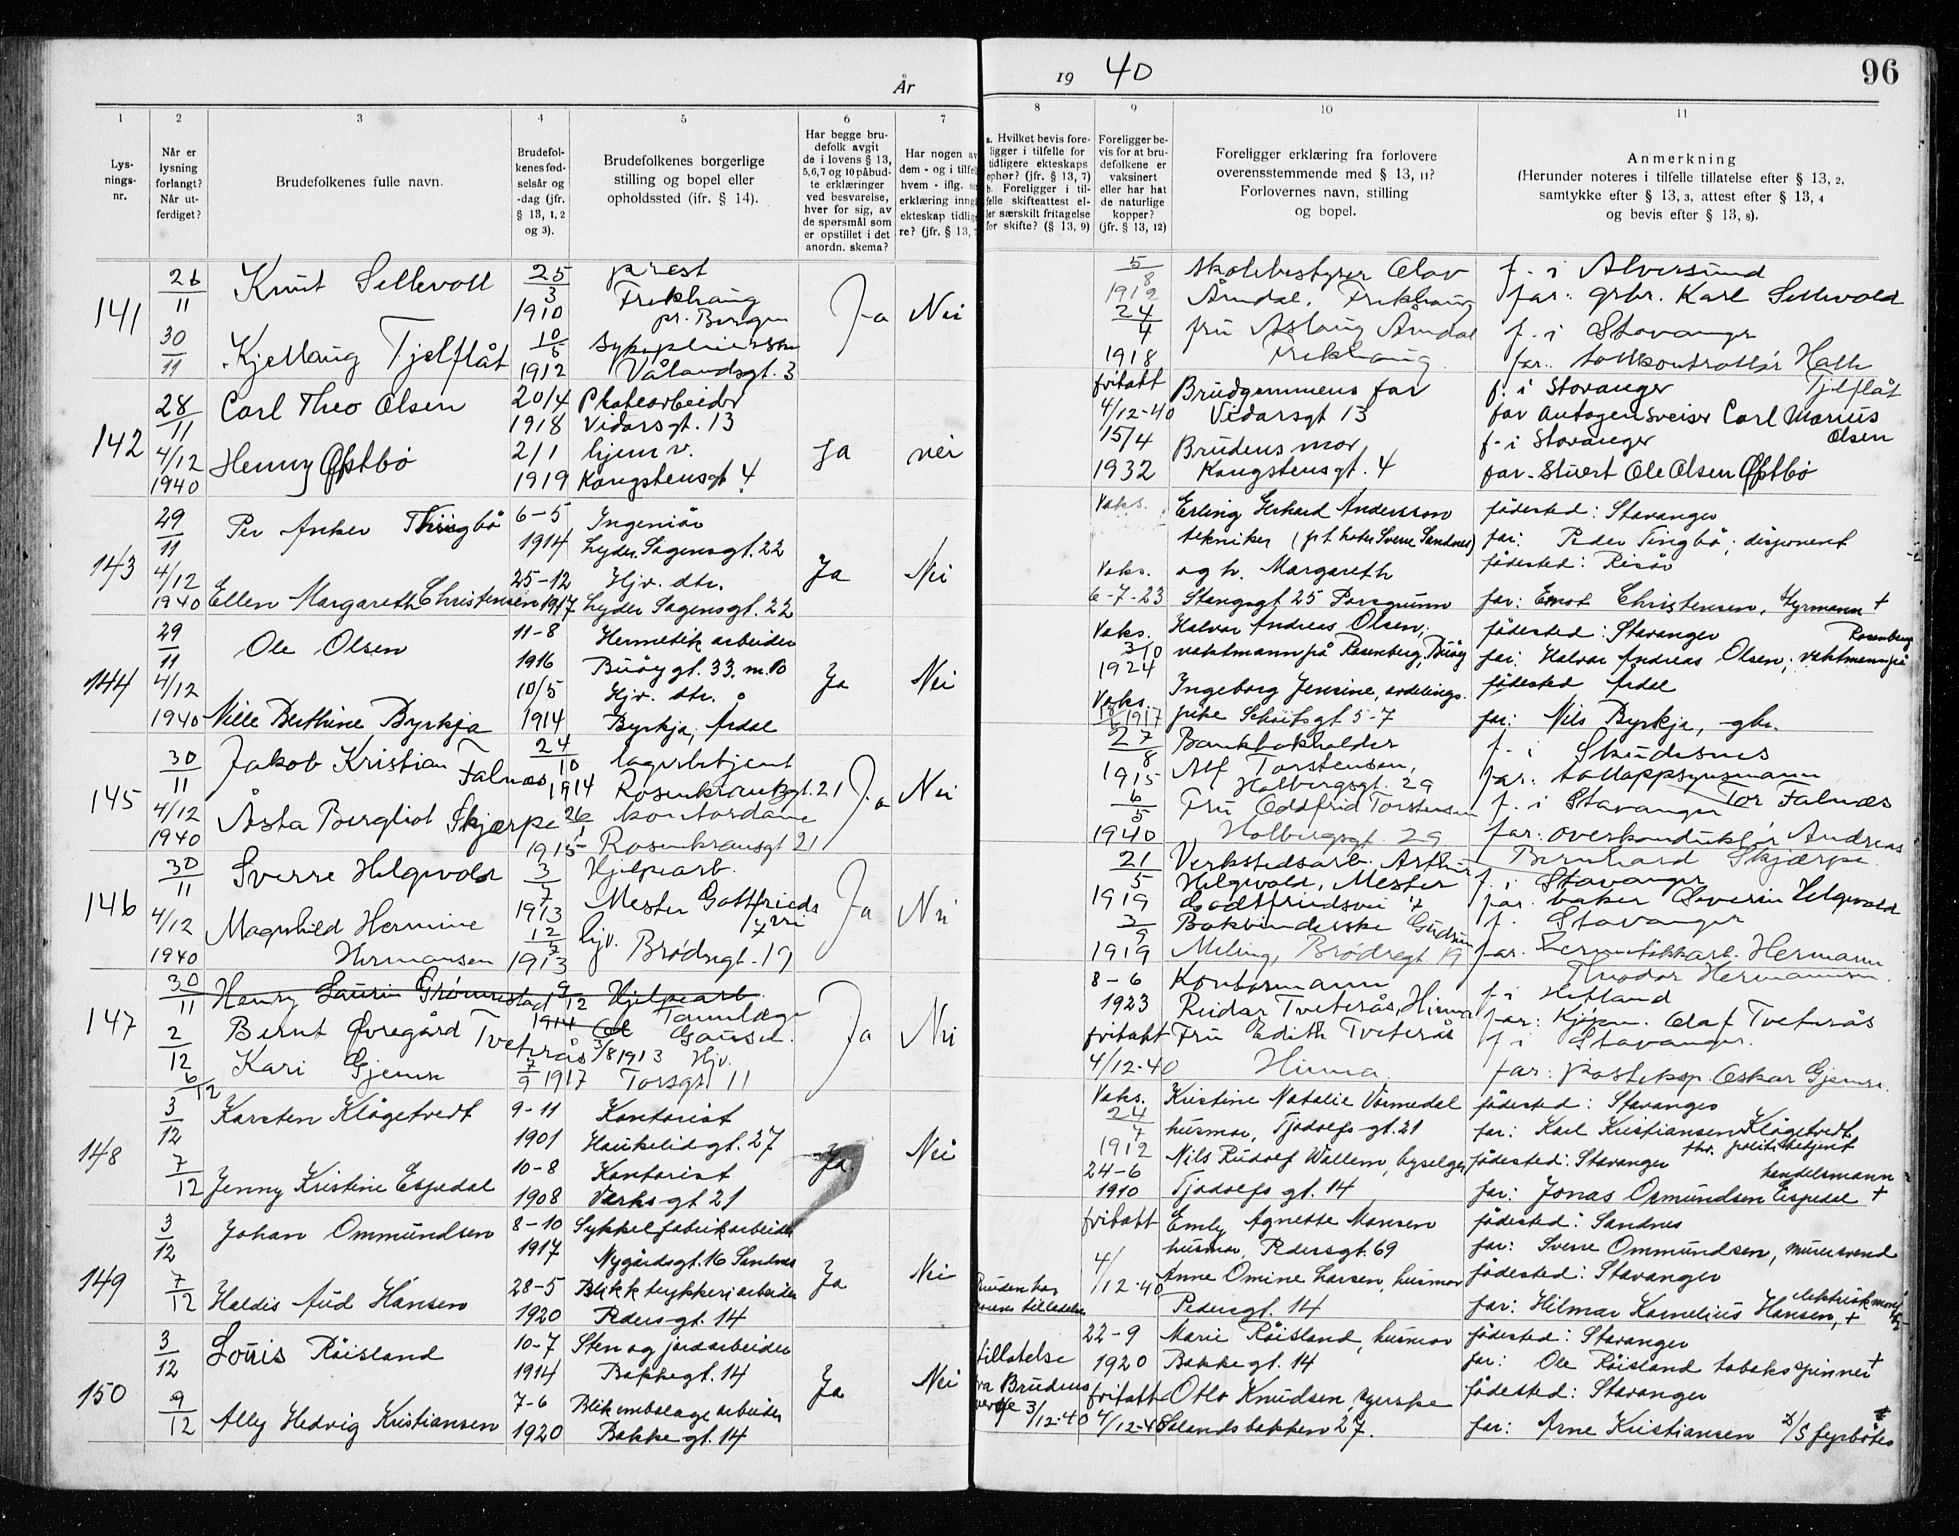 År 19 40
96
1 2 3 4 5 6 7 8 9 10 11
Lys-
nings-
nr.
Når er
lysning
forlangt?
Når ut-
ferdiget?
Brudefolkenes fulle navn.
Brudefol-
kenes fød-
selsår og
-dag (jfr.
§ 13, 1, 2
og 3).
Brudefolkenes borgerlige
stilling og bopel eller
opholdssted (ifr. § 14).
Har begge bru-
defolk avgit
de i lovens § 13,
5,6,7 og 10 påbud-
te erklæringer
ved besvarelse,
hver for sig, av
de spørsmål som
er opstillet i det
anordn. skema?
Har nogen av
dem - og i tilfel
hvem - iflg.
erklæring inng
ekteskap tidlig
re? (jfr. § 13,
a. Hvilket bevis fore-
ligger i tilfelle for
tidligere ekteskaps
ophør? (jfr. § 13, 7)
b. Foreligger i til-
felle skifteattest el-
ler særskilt fritagelse
for skifte? (§ 13, 9)
Foreligger be-
vis for at bru-
defolkene er
vaksinert
eller har hat
de naturlige
kopper?
(jfr. § 13, 12)
Foreligger erklæring fra forlovere
overensstemmende med § 13, 11?
Forlovernes navn, stilling
og bopel.
Anmerkning
(Herunder noteres i tilfelle tillatelse efter § 13, 2,
samtykke efter § 13, 3, attest efter § 13, 4
og bevis efter § 13, 8).
141 26/11 Knut Sellevoll 25/3 1910 prest Frekhaug pr. Bergen Ja Nei 5/8 1912 Skolebestyrer Olav Årndal, Frekhaug f. i Alversund
far: grbr. Karl Sellevold
30/11 Kjellaug Tjelflåt 10/5 1912 Sykepleierske Vålandsgt. 3 24/4 1918 fru Aslaug Årndal Frekhaug f. i Stavanger
far. tollkontrollør Halle Tjelflåt
142 28/11 Carl Theo Olsen 20/4 1918 Platearbeider Vidarsgt. 13 Ja nei fritatt 4/12-40 Brudgommens far Vidarsgt 13 f. i Stavanger
far Autogensveiser Carl Marius Olsen
4/12 1940 Henny Østbø 2/1 1919 hjem v. Kongstensgt 4 15/4 1932 Brudens mor Kongstensgt. 4 f. i Stavanger
far. Stuert Ole Olsen Østbø
143 29/11 Per Anker Tingbø 6-5 1914 Ingeniør Lyder Sagensgt. 22 Ja Nei Vaks. Erling Gerhard Anderssen tekniker f
ødested: Stavanger
far: Peder Tingbø, disponent
4/12 1940 Ellen Margareth Christensen 25-12 1917 Hjv. dtr. Lyder Sagensgt. 22 Vaks. 6-7-23 og h. Margareth Stangsgt 25 Porsgrunn fødested: Risør
far: Christensen, styrmann +
144 29/11 Ole Olsen 11-8 1916 Hermetikarbeider Buøygt. 33. Ja Nei Vaks. 3/10 1924 Halvar Andreas Olsen, vaktmann på Rosenberg, Buøy fødested: Stavanger
far: Halvar Andreas Olsen, vaktmann på Rosenberg
4/12 1940 Nille Berthine Byrkja 10/5 1914 Hjv. dtr. Byrkja, Årdal Vaks. Ingeborg Jensine, avdelings. 5-7 fødested Årdal
far: Nils Byrkja, gbr.
145 30/11 Jakob Kristian Falnes 24/10 1914 lagerbetjent Rosenkrantzgt. 21 Ja Nei 27/8 1915 Bankbokholder Alf Torstensen, Holbergsgt. 29 f. i Skudesnes
far. tolloppsynsmann Tor Falnæs
4/12 1940 Åsta Bergliot Skjærpe 26/1 1915 kontordame Rosenkransgt 21 6/5 1940 Fru Oddfrid Torstensen Holbergsgt. 29 f. i Stavanger
far. overkonduktør Andreas Bernhard Skjærpe
146 30/11 Sverre Helgevold 3/7 1913 Hjelpearb. Mester Gottfrieds vei 7 Ja Nei 21/5 1919 Verkstedsarb. Arthur Helgevold, Mester Godtfriedsvei 7 f. i Stavanger
far. baker Severin Helgevold
4/12 1940 Magnhild Hermine Hermansen 12/7 1913 hjv. Brødregt. 19 3/9 1919 Bokbinderske Gudrun Meling, Brødregt 19 f. Stavanger
far. Hermann Theodor Hermansen
147 30/11 Henry Laurin Grønnestad 9/12 1914 Hjelpearb.
2/12 Bernt Øvregård Tveterås 3/8 1913 Tannlæge Gausel. Ja Nei 8-6 1923 Kontormann Reidar Tveterås, Hinna f. i Hetland
far: Kjøpm. Olaf Tveterås
6/12 Kari Gjemre 7/9 1917 Hjv. Torsgt. 11 fritatt 4/12-40 Fru Edith Tveterås Hinna. f. i Stavanger.
far: posteksp. Oskar Gjemre
148 3/12 Karsten Klågetvedt 9-11 1901 Kontorist Haukelidgt. 27 Ja Nei Vaks. 24/4 1912 Kristine Natalie Vormedal husmor, Tjodolfs-gt. 21 fødested: Stavanger
far: Karl Kristiansen Klågetvedt, fhv. politibetjent
7/12 Jenny Kristine Espedal 10-8 1908 Kontorist Verksgt 21 24-6 1910 Nils Rudolf Wallem, byselger Tjodolfs gt. 14 fødested: Stavanger
far: Jonas Osmundsen Espedal + handelsmann
149 3/12 Johan Ommundsen 8-10 1917 Sykkelfabrikarbeider Nygårdsgt. 16 Sandnes Ja Nei fritatt 4/12-40 Emly Agnette Hansen husmor, Pedersgt. 69 fødested: Sandnes
far: Sverre Ommundsen, murersvend
7/12 Haldis Aud Hansen 28-5 1920 Blikktrykkeriarbeider Pedersgt. 14 Bruden har tillatelse Anne Omine Larsen, husmor Pedersgt. 14 fødested: Stavanger
far: Hilmar Kornelius Hansen, + elektrisk
150 3/12 Louis Røisland 10-7 1914 Sten og jordarbeider Bakkegt. 14 Ja Nei tillatelse fra Brudens verge 3/12-40 22-9 1920 Marie Røisland, husmor Bakkegt. 14 fødested: Stavanger
far: Ole Røisland tobakspinner +
9/12 Ally Hedvig Kristiansen 7-6 1920 Blikemballagearbeider Bakkegt. 14 fritatt 4/12-40 Otto Knudsen, Sølandsbakken 27. fødested: Stavanger
far: Arne Kristiansen D/S fyrbøter +